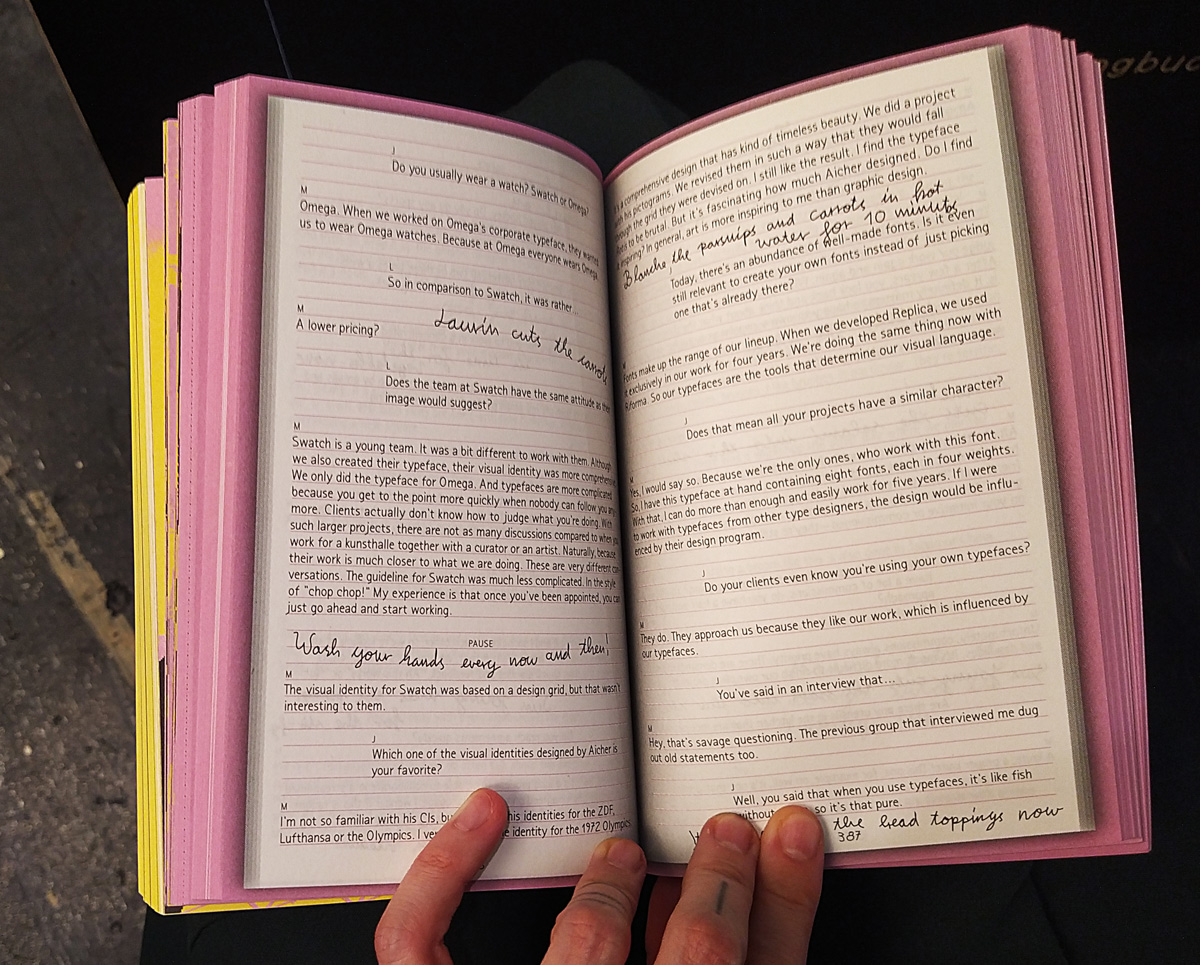 J
Do you usually wear a watch? Swatch or Omega?
M
Omega. When we worked on Omega's corporate typeface, they wanted
us to wear Omega watches. Because at Omega everyone wears Omega.
L
So in comparison to Swatch, it was rather...
M
A lower pricing?
Laurin cuts the carrots
L
Does the team at Swatch have the same attitude as their
image would suggest?
M
Swatch is a young team. It was a bit different to work with them. Although
we also created their typeface, their visual identity was more comprehensive.
We only did the typeface for Omega. And typefaces are more complicated
because you get to the point more quickly when nobody can follow you any
more. Clients actually don't know how to judge what you're doing. With
such larger projects, there are not as many discussions compared to when you
work for a kunsthalle together with a curator or an artist. Naturally, because
their work is much closer to what we are doing. These are very different con-
versations. The guideline for Swatch was much less complicated. In the style
of "chop chop!" My experience is that once you've been appointed, you can
just go ahead and start working.
PAUSE
Wash your hands every now and then!
M
The visual identity for Swatch was based on a design grid, but that wasn't
interesting to them.
J
Which one of the visual identities designed by Aicher is
your favorite?
M
I'm not so familiar with his CIs, but his identities for the ZDF,
Lufthansa or the Olympics. I identity for the 1972 Olympics
a comprehensive design that has kind of timeless beauty. We did a project
his pictograms. We revised them in such a way that they would fall
through the grid they were devised on. I still like the result. I find the typeface
to be brutal. But it's fascinating how much Aicher designed. Do I find
inspiring? In general, art is more inspiring to me than graphic design.
Blanche the parsnips and carrots in hot
water for 10 minutes
J
Today, there's an abundance of well-made fonts. Is it even
still relevant to create your own fonts instead of just picking
one that's already there?
M
Fonts make up the range of our lineup. When we developed Replica, we used
it exclusively in our work for four years. We're doing the same thing now with
Riforma. So our typefaces are the tools that determine our visual language.
J
Does that mean all your projects have a similar character?
M
Yes, I would say so. Because we're the only ones, who work with this font.
So, I have this typeface at hand containing eight fonts, each in four weights.
With that, I can do more than enough and easily work for five years. If I were
to work with typefaces from other type designers, the design would be influ-
enced by their design program.
J
Do your clients even know you're using your own typefaces?
M
They do. They approach us because they like our work, which is influenced by
our typefaces.
J
You've said in an interview that...
M
Hey, that's savage questioning. The previous group that interviewed me dug
out old statements too.
J
Well, you said that when you use typefaces, it's like fish
without so it's that pure.
the bead toppings now
387